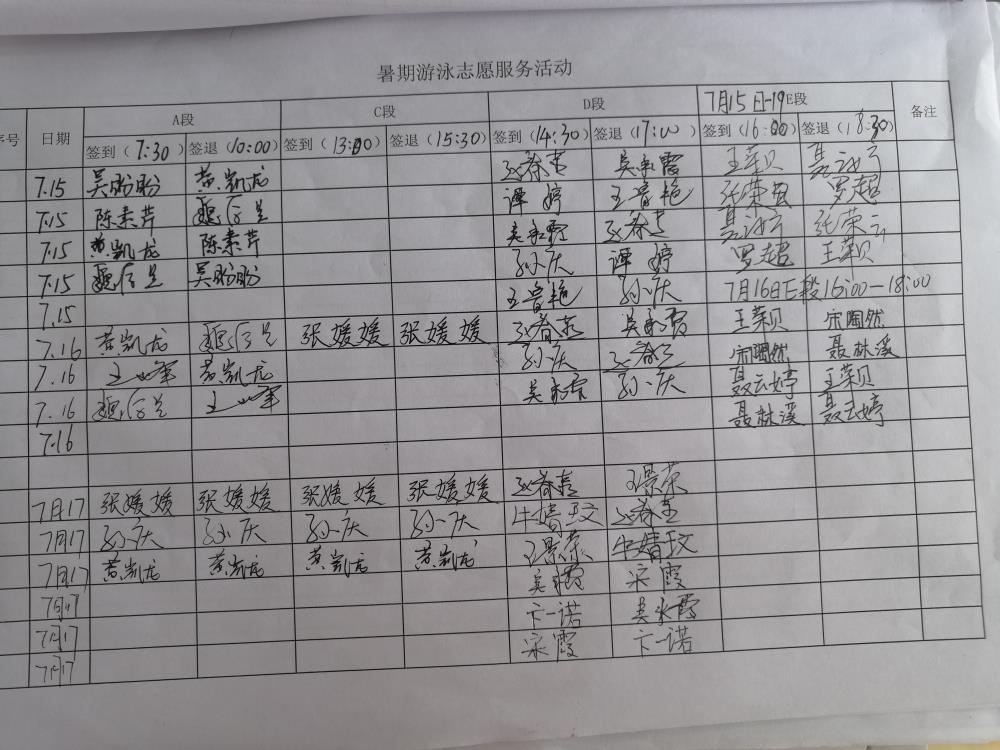 暑期游泳志愿服务活动
序号 日期 A段 C段 D段 7月15日-19E段 备注
签到（7:30） 签退（10:00） 签到（13:00） 签退（15:30） 签到（14:30） 签退（17:00） 签到（16:00） 签退（18:30）
7.15 吴盼盼 黄凯龙 赵春燕 吴永霞 王荣贝
7.15 陈素芹 谭婷 王晋艳 罗超
7.15 黄凯龙 陈素芹 吴永霞 赵春燕
7.15 吴盼盼 孙庆 谭婷 罗超 王荣贝
7.15 王晋艳 孙庆 7月16日E段16:00—18:00
7.16 黄凯龙 张媛媛 张媛媛 赵春燕 吴永霞 王荣贝 宋陶然
7.16 黄凯龙 孙庆 赵春燕 宋陶然 聂林溪
7.16 吴永霞 孙庆 聂云婷 王荣贝
7.16 聂林溪 聂云婷
7月17 张媛媛 张媛媛 张媛媛 张媛媛 赵春燕 王景荣
7月17 孙庆 孙庆 孙庆 孙庆 牛婧文 赵春燕
7月17 黄凯龙 黄凯龙 黄凯龙 黄凯龙 王景荣 牛婧文
7月17 吴永霞 宋霞
7月17 卞一诺 吴永霞
7月17 宋霞 卞一诺